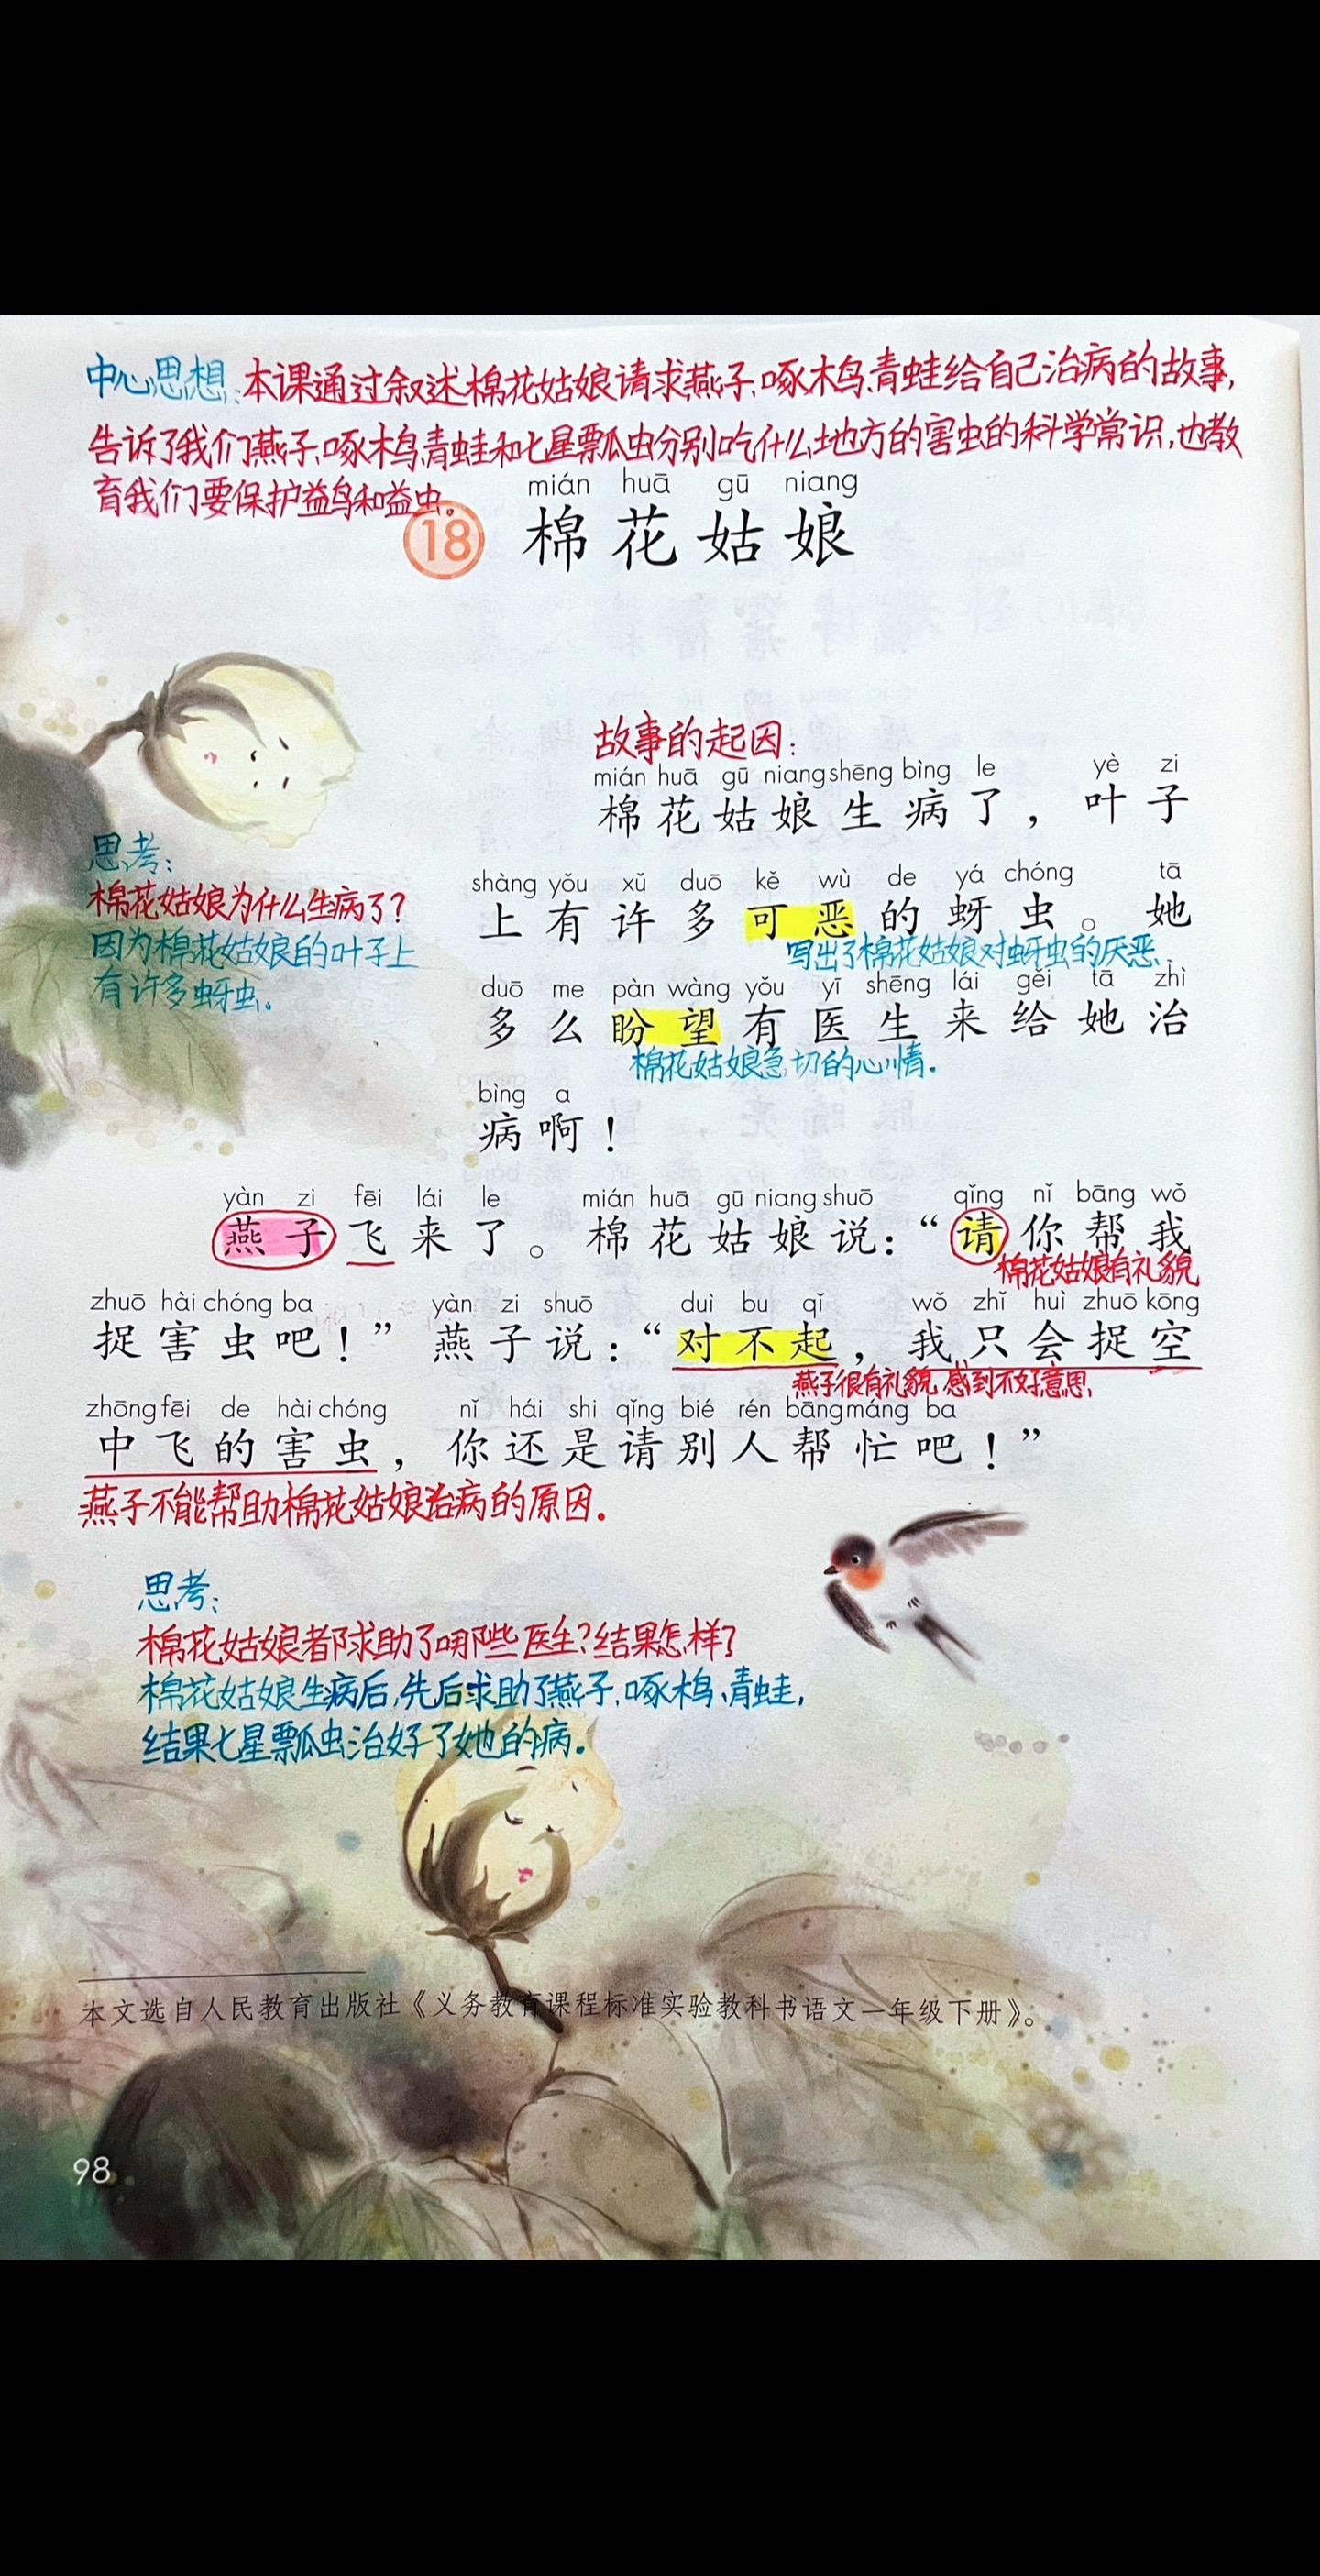 中心思想:本课通过叙述棉花姑娘请求燕子、啄木鸟、青蛙给自己治病的故事,
告诉了我们燕子、啄木鸟、青蛙和七星瓢虫分别吃什么地方的害虫的科学常识,也教
育我们要保护益鸟和益虫。
mián huā gū niang
18 棉花姑娘
故事的起因:
mián huā gū niang shēng bìng le yè zi
棉花姑娘生病了,叶子
思考:
棉花姑娘为什么生病了?
因为棉花姑娘的叶子上
有许多蚜虫。
shàng yǒu xǔ duō kě wù de yá chóng tā
上有许多可恶的蚜虫。她
写出了棉花姑娘对蚜虫的厌恶.
duō me pàn wàng yǒu yī shēng lái gěi tā zhì
多么盼望有医生来给她治
棉花姑娘急切的心情.
bìng a
病啊!
yàn zi fēi lái le mián huā gū niang shuō qǐng nǐ bāng wǒ
燕子飞来了。棉花姑娘说:“请你帮我
棉花姑娘有礼貌
zhuō hài chóng ba yàn zi shuō duì bu qǐ wǒ zhǐ huì zhuō kōng
捉害虫吧!”燕子说:“对不起,我只会捉空
燕子很有礼貌,感到不好意思.
zhōng fēi de hài chóng nǐ hái shi qǐng bié rén bāng máng ba
中飞的害虫,你还是请别人帮忙吧!”
燕子不能帮助棉花姑娘治病的原因.
思考:
棉花姑娘都求助了哪些医生?结果怎样?
棉花姑娘生病后,先后求助了燕子、啄木鸟、青蛙,
结果七星瓢虫治好了她的病.
本文选自人民教育出版社《义务教育课程标准实验教科书语文一年级下册》。
98